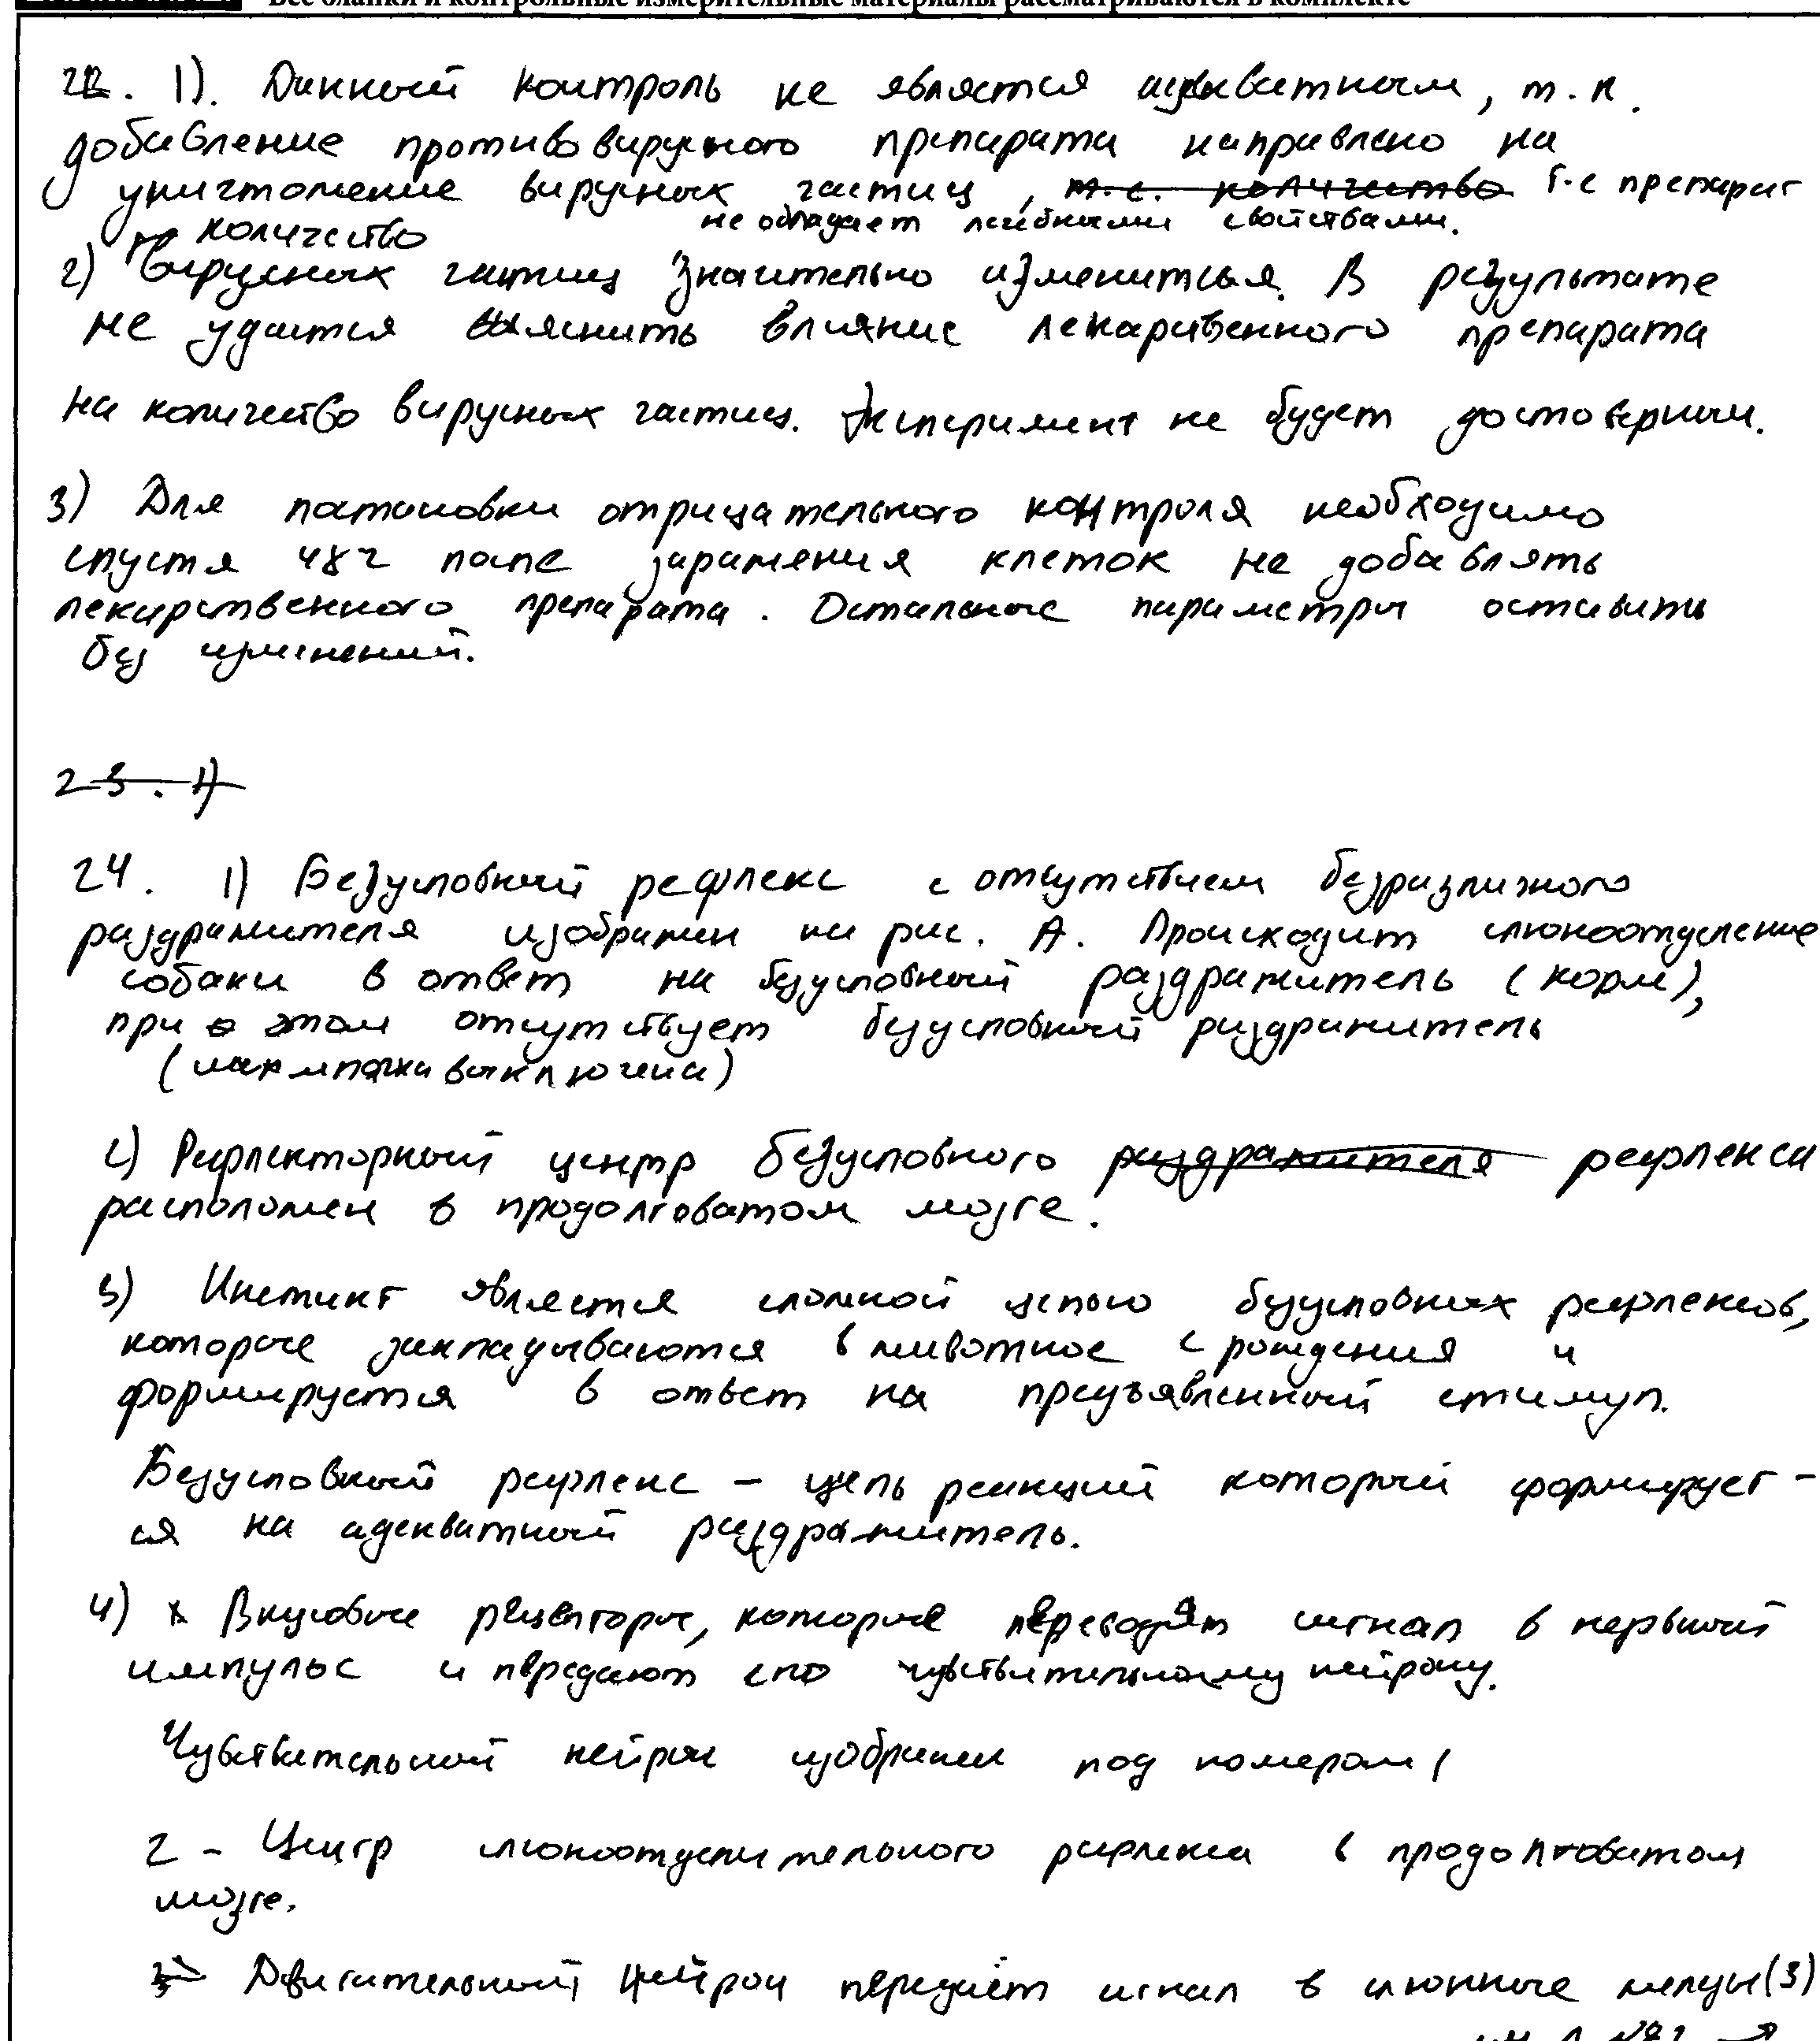 Все бланки и контрольные измерительные материалы рассматриваются в комплекте
22. 1). Данный контроль не является адекватным, т.к.
добавление противовирусного препарата направлено на
уничтожение вирусных частиц, т.е. количество т.е препарат
не обладает лечебными свойствами.
количество
2) вирусных частиц значительно измениться. В результате
не удастся выяснить влияние лекарственного препарата
на количество вирусных частиц. Эксперимент не будет достоверным.
3) Для постановки отрицательного контроля необходимо
спустя 48ч после заражения клеток не добавлять
лекарственного препарата. Остальные параметры оставить
без изменений.
23. 1)
24. 1) Безусловный рефлекс с отсутствием безразличного
раздражителя изображен на рис. А. Происходит слюноотделение
собаки в ответ на безусловный раздражитель (корм),
при этом отсутствует безусловный раздражитель
(лампочка выключена)
2) Рефлекторный центр безусловного раздражителя рефлекса
расположен в продолговатом мозге.
3) Инстинкт является сложной цепью безусловных рефлексов,
которые закладываются в животное с рождения и
формируется в ответ на предъявленный стимул.
Безусловный рефлекс – цепь реакций который формирует-
ся на адекватный раздражитель.
4) Вкусовые рецепторы, которые переводят сигнал в нервный
импульс и передают его чувствительному нейрону.
Чувствительный нейрон изображен под номером 1
2 – Центр слюноотделительного рефлекса в продолговатом
мозге.
Двигательный нейрон передаёт сигнал в слюнные железы (3)